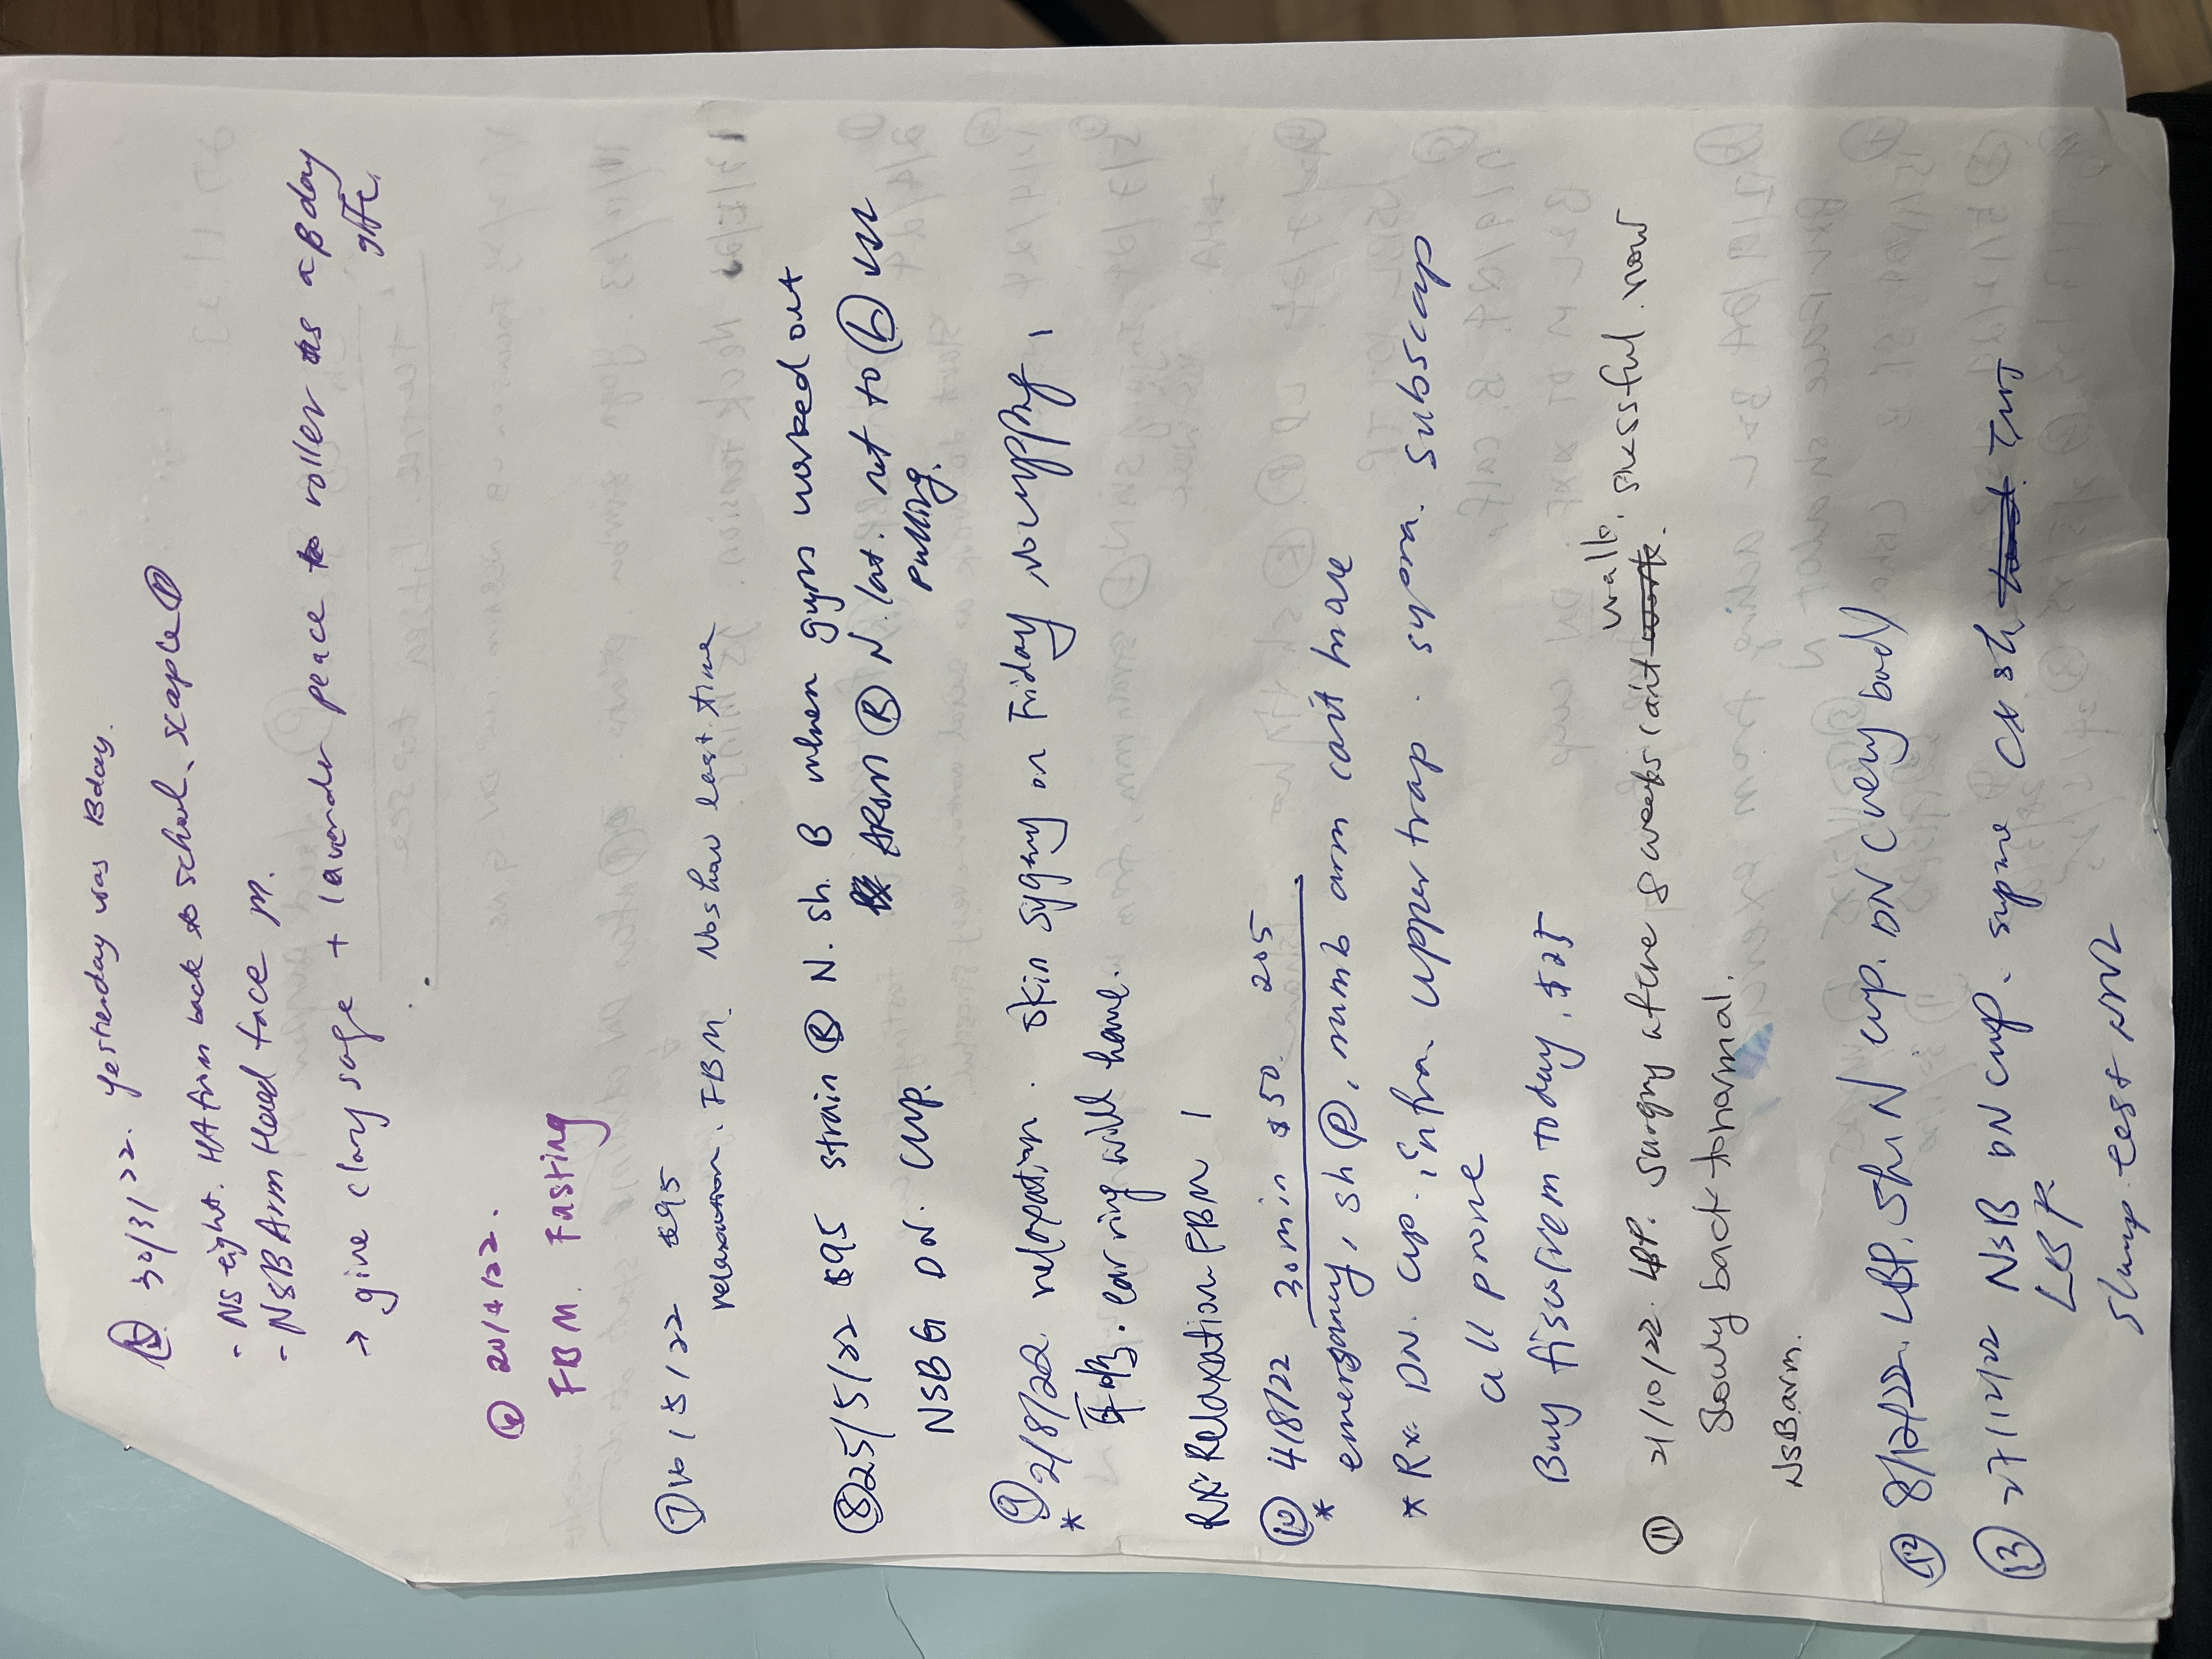 ⑤ 30/3/22. Yesterday was Bday.
- NS eight. HA from back to school. scaple Ⓟ
- NSB Arm Head face M.
→ give clary sage + lavender peace roller as a Bday
gift.
⑥ 20/4/22.
FBM. Fasting
⑦ 10/5/22 $95
relaxation. FBM. No show last time
⑧ 25/5/22 $95 strain Ⓡ N. sh. B when gym worked out
AROM Ⓡ N. lat. rot to Ⓛ
NSBG DN. cup. pulling.
⑨ 2/8/22. relaxation. skin sygery on Friday No cupping,
* 耳 ear ring will have.
Rx: Relaxation FBM 1
⑩ 4/8/22 30 min $50. 205
* emergency, sh Ⓟ, numb arm can't move
* Rx. DN. Cup. infra. upper trap. supra. subscap
all prone
Buy fiscocrem today. $25
⑪ 21/10/22. LBP. Surgry aftere 8 weeks can't work. walk. stressful. now
Slowly back to normal.
NSB arm.
⑫ 8/12/22. LBP. Sh. N cup. DN (very bad)
⑬ 27/12/22 NSB DN cup. supine Cx sh
LSP
Slump test